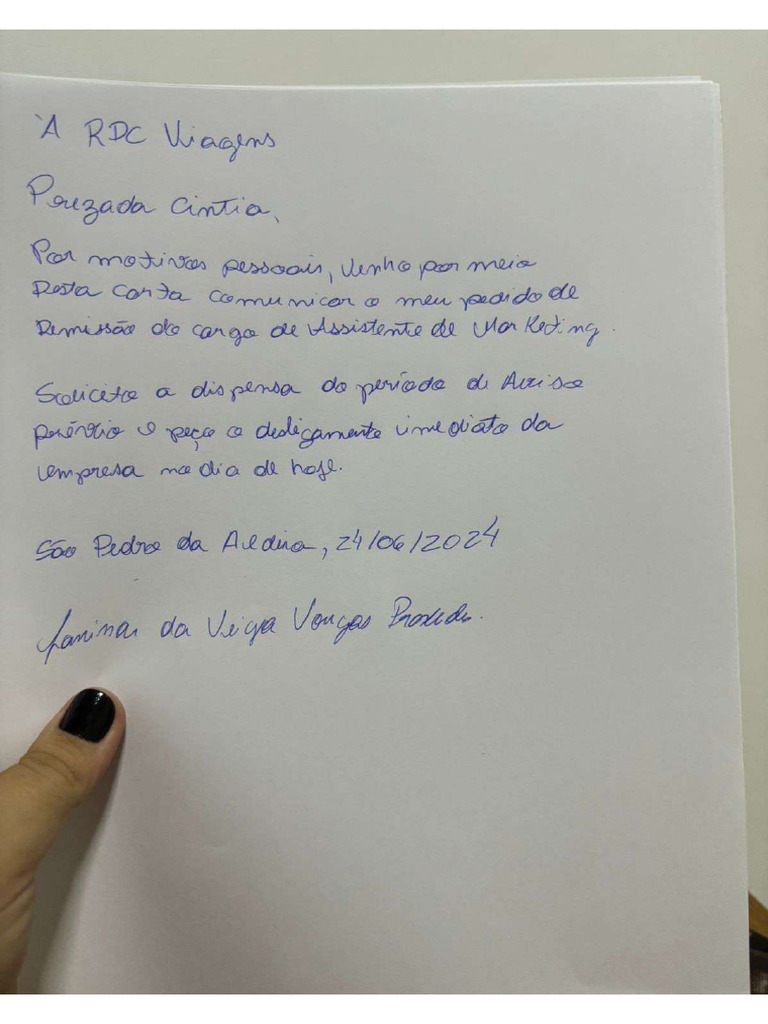 À RDC Viagens
Prezada Cintia,
Por motivos pessoais, venho por meio
desta carta comunicar o meu pedido de
demissão do cargo de Assistente de Marketing.
Solicito a dispensa do período de Aviso
prévio e peço o desligamento imediato da
empresa no dia de hoje.
São Pedro da Aldeia, 24/06/2024
da Veiga